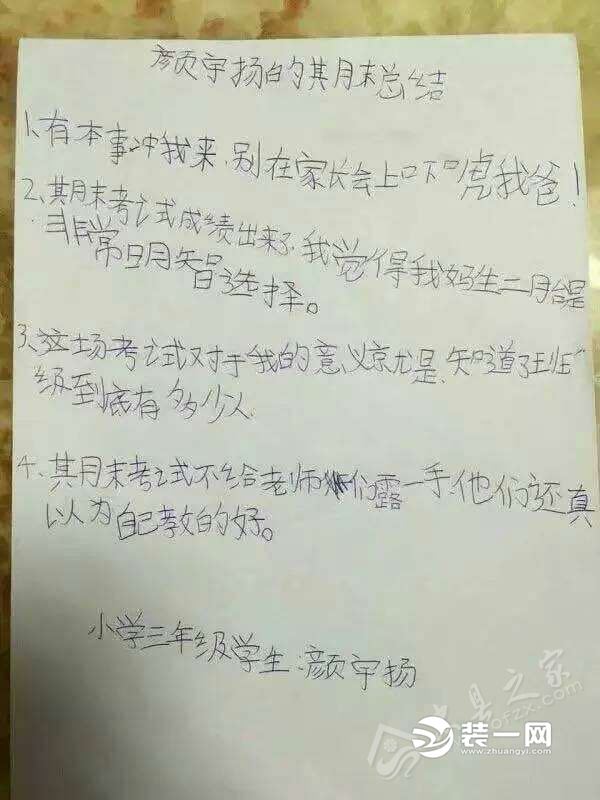 颜宇扬的期末总结
1、有本事冲我来，别在家长会上吓唬我爸！
2、期末考试成绩出来了，我觉得我妈生二胎是
非常明智选择。
3、这场考试对于我的意义就是，知道了班
级到底有多少人
4、期末考试不给老师们露一手，他们还真
以为自己教的好。
小学三年级学生：颜宇扬
之家
ofzx.com
装一网
www.zhuangyi.com